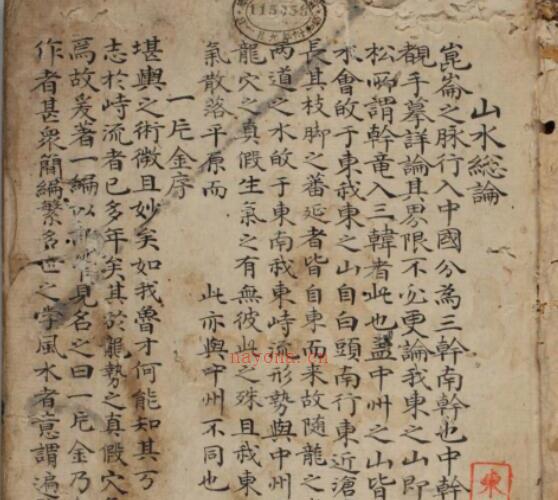 115358
山水総論
崑崙之脉行入中國分為三幹南幹也中幹
觀手摹詳論其界限不必更論我東之山即
松所謂幹竜入三韓者此也盖中州之山皆
水會故于東我東之山自白頭南行東近滄
長其枝脚之蕃延者皆自東而来故随龍之
两道之水故于東南我東峙流形勢與中州
龍穴之真假生氣之有無彼此之殊且我東
氣散落平原而 此亦與中州不同也
一片金序
堪輿之術微且妙矣如我魯才何能知其万
志於峙流者已多年矣其於龍勢之真假穴
焉故爰著一編以 見名之曰一片金乃
作者甚衆簡編繁多世之学風水者意謂遍
nayona.cn
東